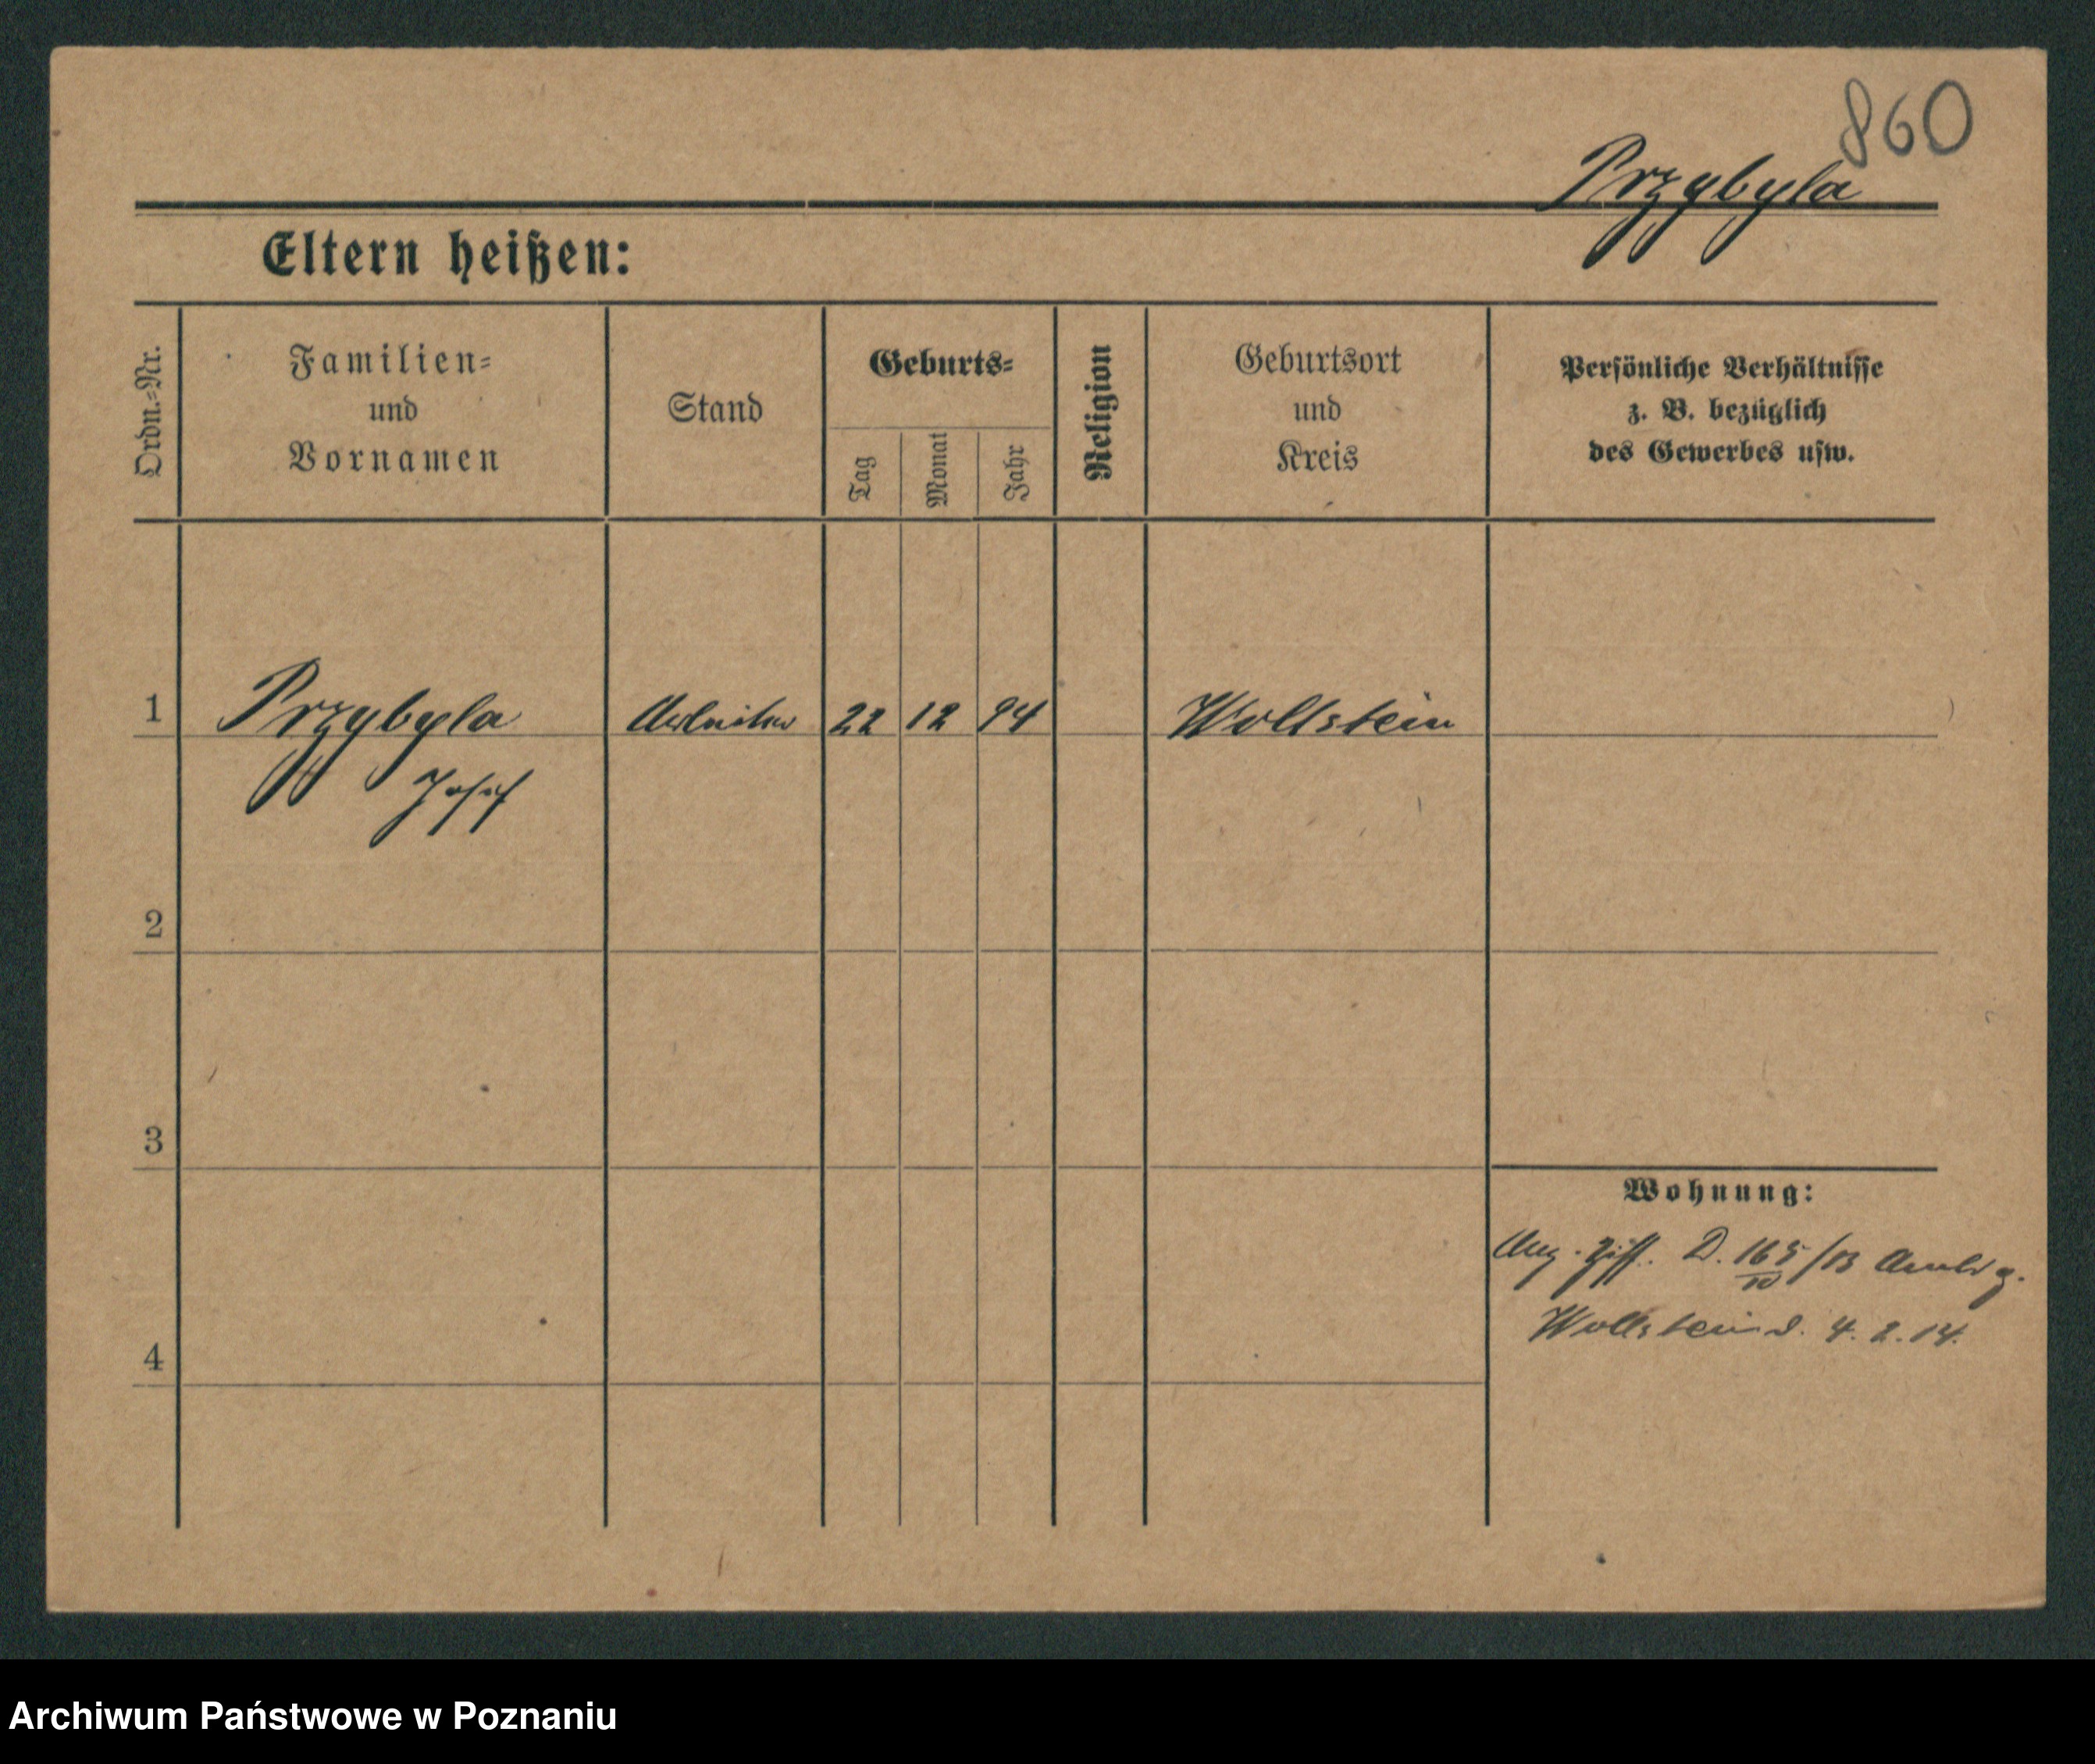 860
Przybyla
Eltern heißen:
Ordn.-Nr.
Familien-
und
Vornamen
Stand
Geburts-
Tag
Monat
Jahr
Religion
Geburtsort
und
Kreis
Persönliche Verhältnisse
z. B. bezüglich
des Gewerbes usw.
1 Przybyla Arbeiter 22 12 94 Wollstein
Josef
2
3
4
Wohnung:
Ang. Ziff. D. 165/13
Wollstein d. 4. 2. 14.
Archiwum Państwowe w Poznaniu